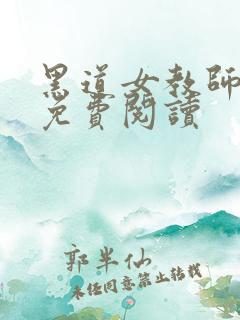 黑道女教師
免費閱讀
郭半仙
未經同意禁止轉載